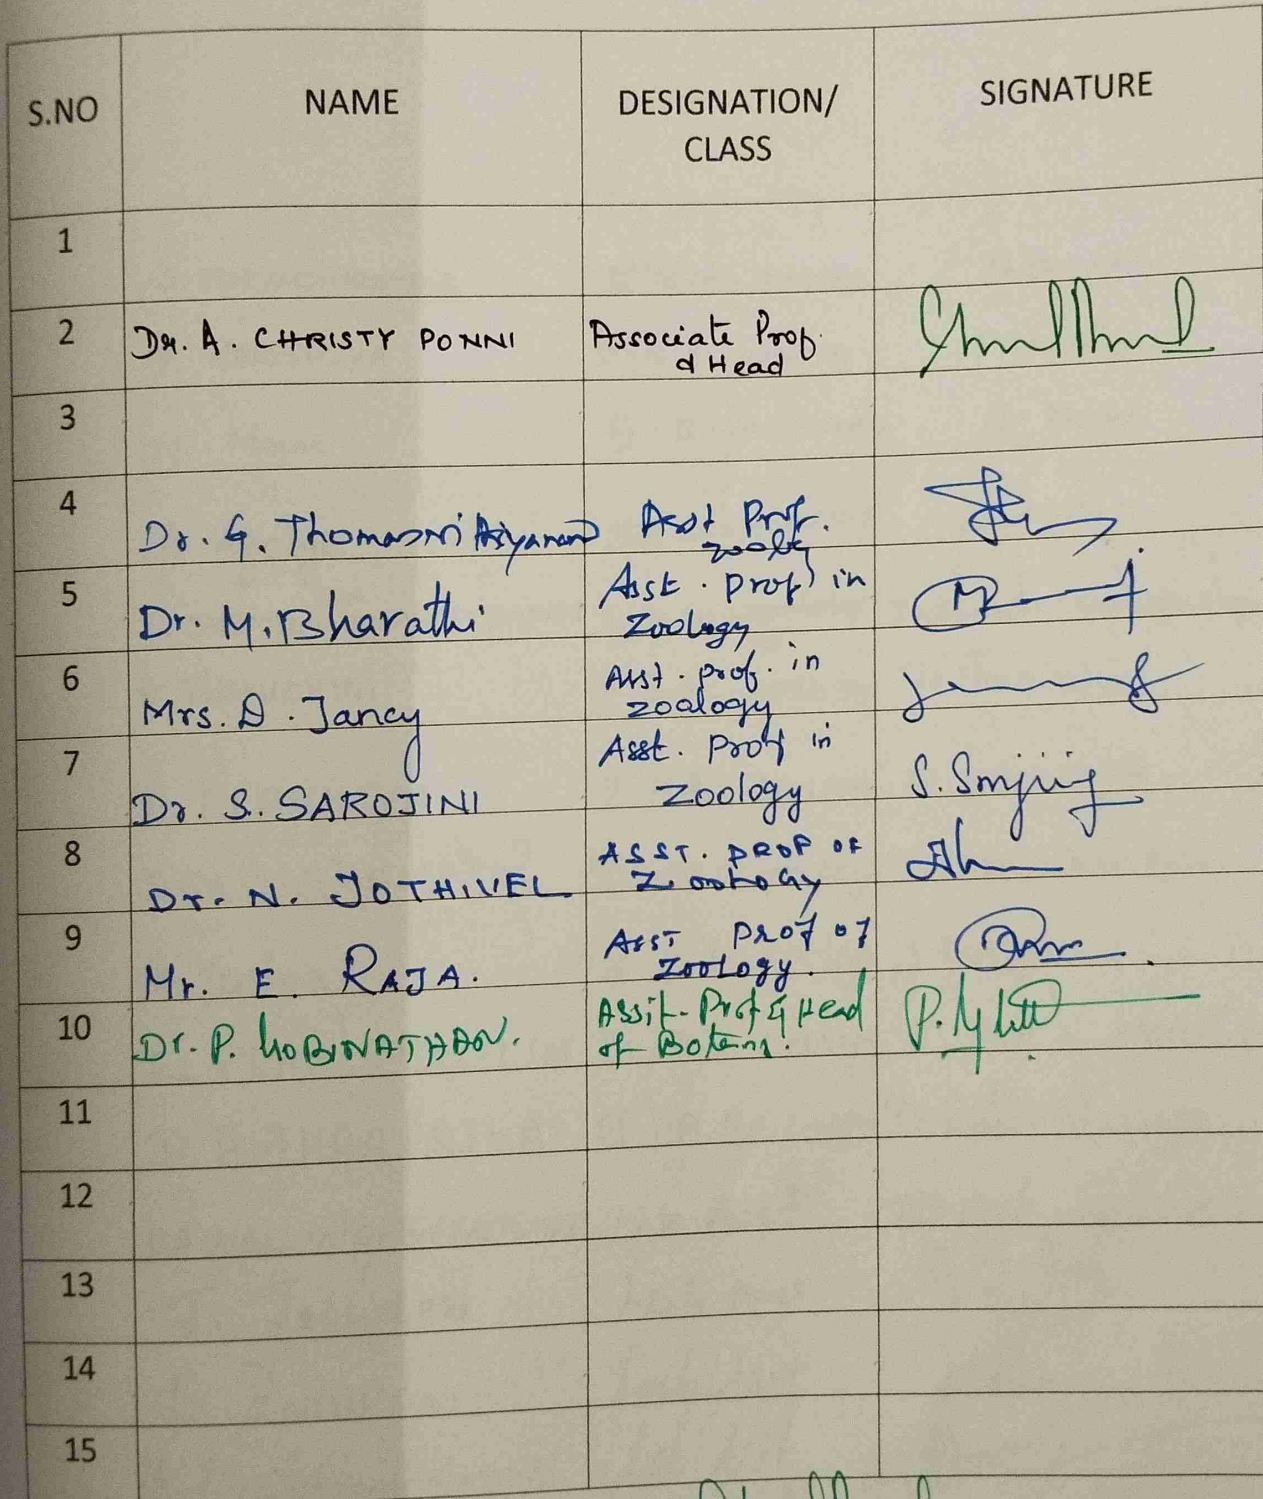 S.NO NAME DESIGNATION/ SIGNATURE
CLASS
1
2 Dr. A. CHRISTY PONNI Associate Prof.
& Head
3
4 Dr. G. Asst Prof.
5 Dr. M. Bharathi Asst. prof in
Zoology
6 Mrs. D. Jancy Asst. prof. in
zoalogy
7 Dr. S. SAROJINI Asst. Prof in
Zoology
8 Dr. N. JOTHIVEL ASST. PROF OF
Zoology
9 Mr. E. RAJA. Asst Prof of
Zoology.
10 Dr. P. Assit. Prof & Head
of
11
12
13
14
15